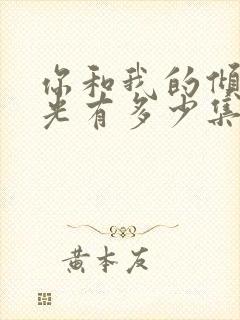 你和我的倾
光有多少集
黄本友